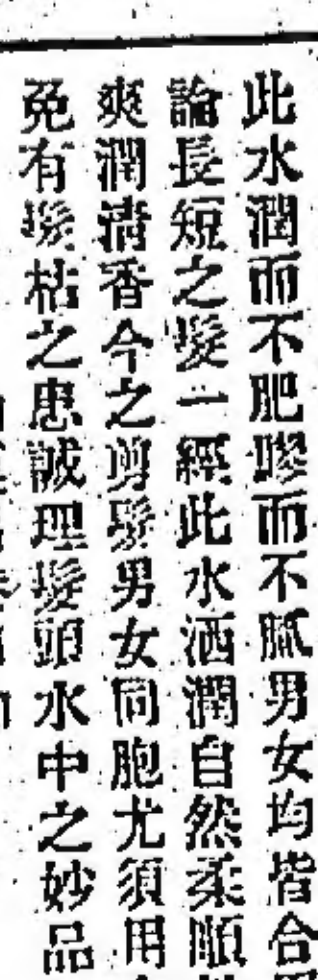 此水潤而不肥膠而不膩男女均皆合
論長短之髮一經此水洒潤自然柔順
爽潤清香今之剪髮男女同胞尤須用
免有髮枯之患誠理髮頭水中之妙品